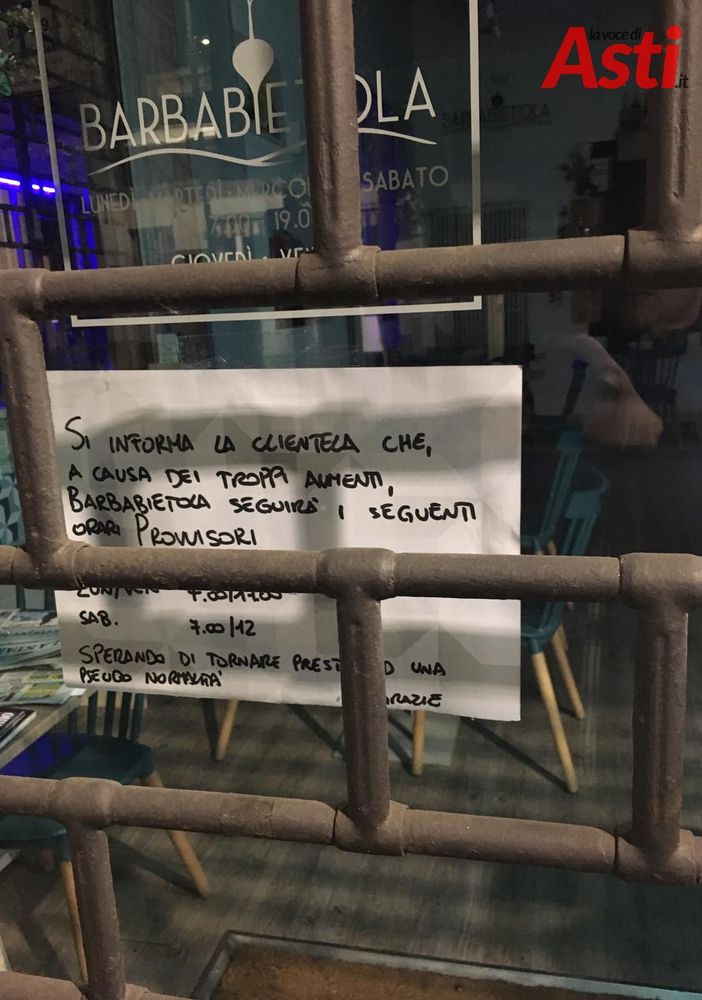 la voce di
Asti.it
BARBABIE OLA
BARBABIETOLA
LUNEDÌ MARTEDÌ · MERCOL SABATO
7.00 - 19.0
GIOVEDÌ · VEN
SI INFORMA LA CLIENTELA CHE,
A CAUSA DEI TROPPI AUMENTI,
BARBABIETOLA SEGUIRA' I SEGUENTI
ORARI PROVVISORI
LUN/VEN 7.00/17.00
SAB. 7.00/12
SPERANDO DI TORNARE PREST AD UNA
PSEUDO NORMALITA'
GRAZIE